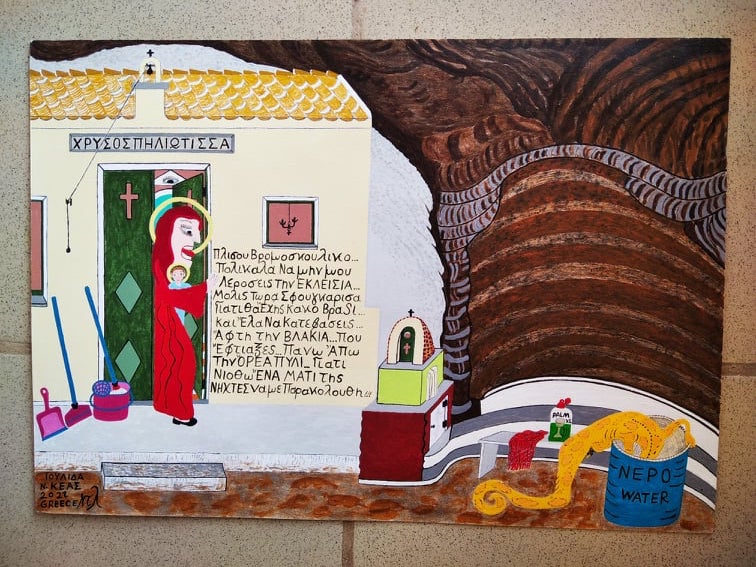 ΧΡΥΣΟΣΠΗΛΙΩΤΙΣΣΑ
ΠλιSου ΒρομοσκουλικO...
Πολικαλα Να μην μου
Λεροσεις Την ΕΚΛΕΙΣΙΑ...
Μολις Τωρα Σφουγκαρισα
Γιατι θα Εχης Κακο ΒραSι...
και Ελα Να Κατεβασεις...
Αφτη την ΒΛΑΚΙΑ... Που
Εφτιαξες... Πανω Απω
Την ΟΡΕΑ ΠΥΛΙ... Γιατι
Νιοθω ΕΝΑ ΜΑΤΙ της
ΝΗΧΤΕΣ Να με Παρακολουθη...
PALM
ΝΕΡΟ
WATER
ΙΟΥΛΙΔΑ
Ν. ΚΕΑΣ
2022
GREECE